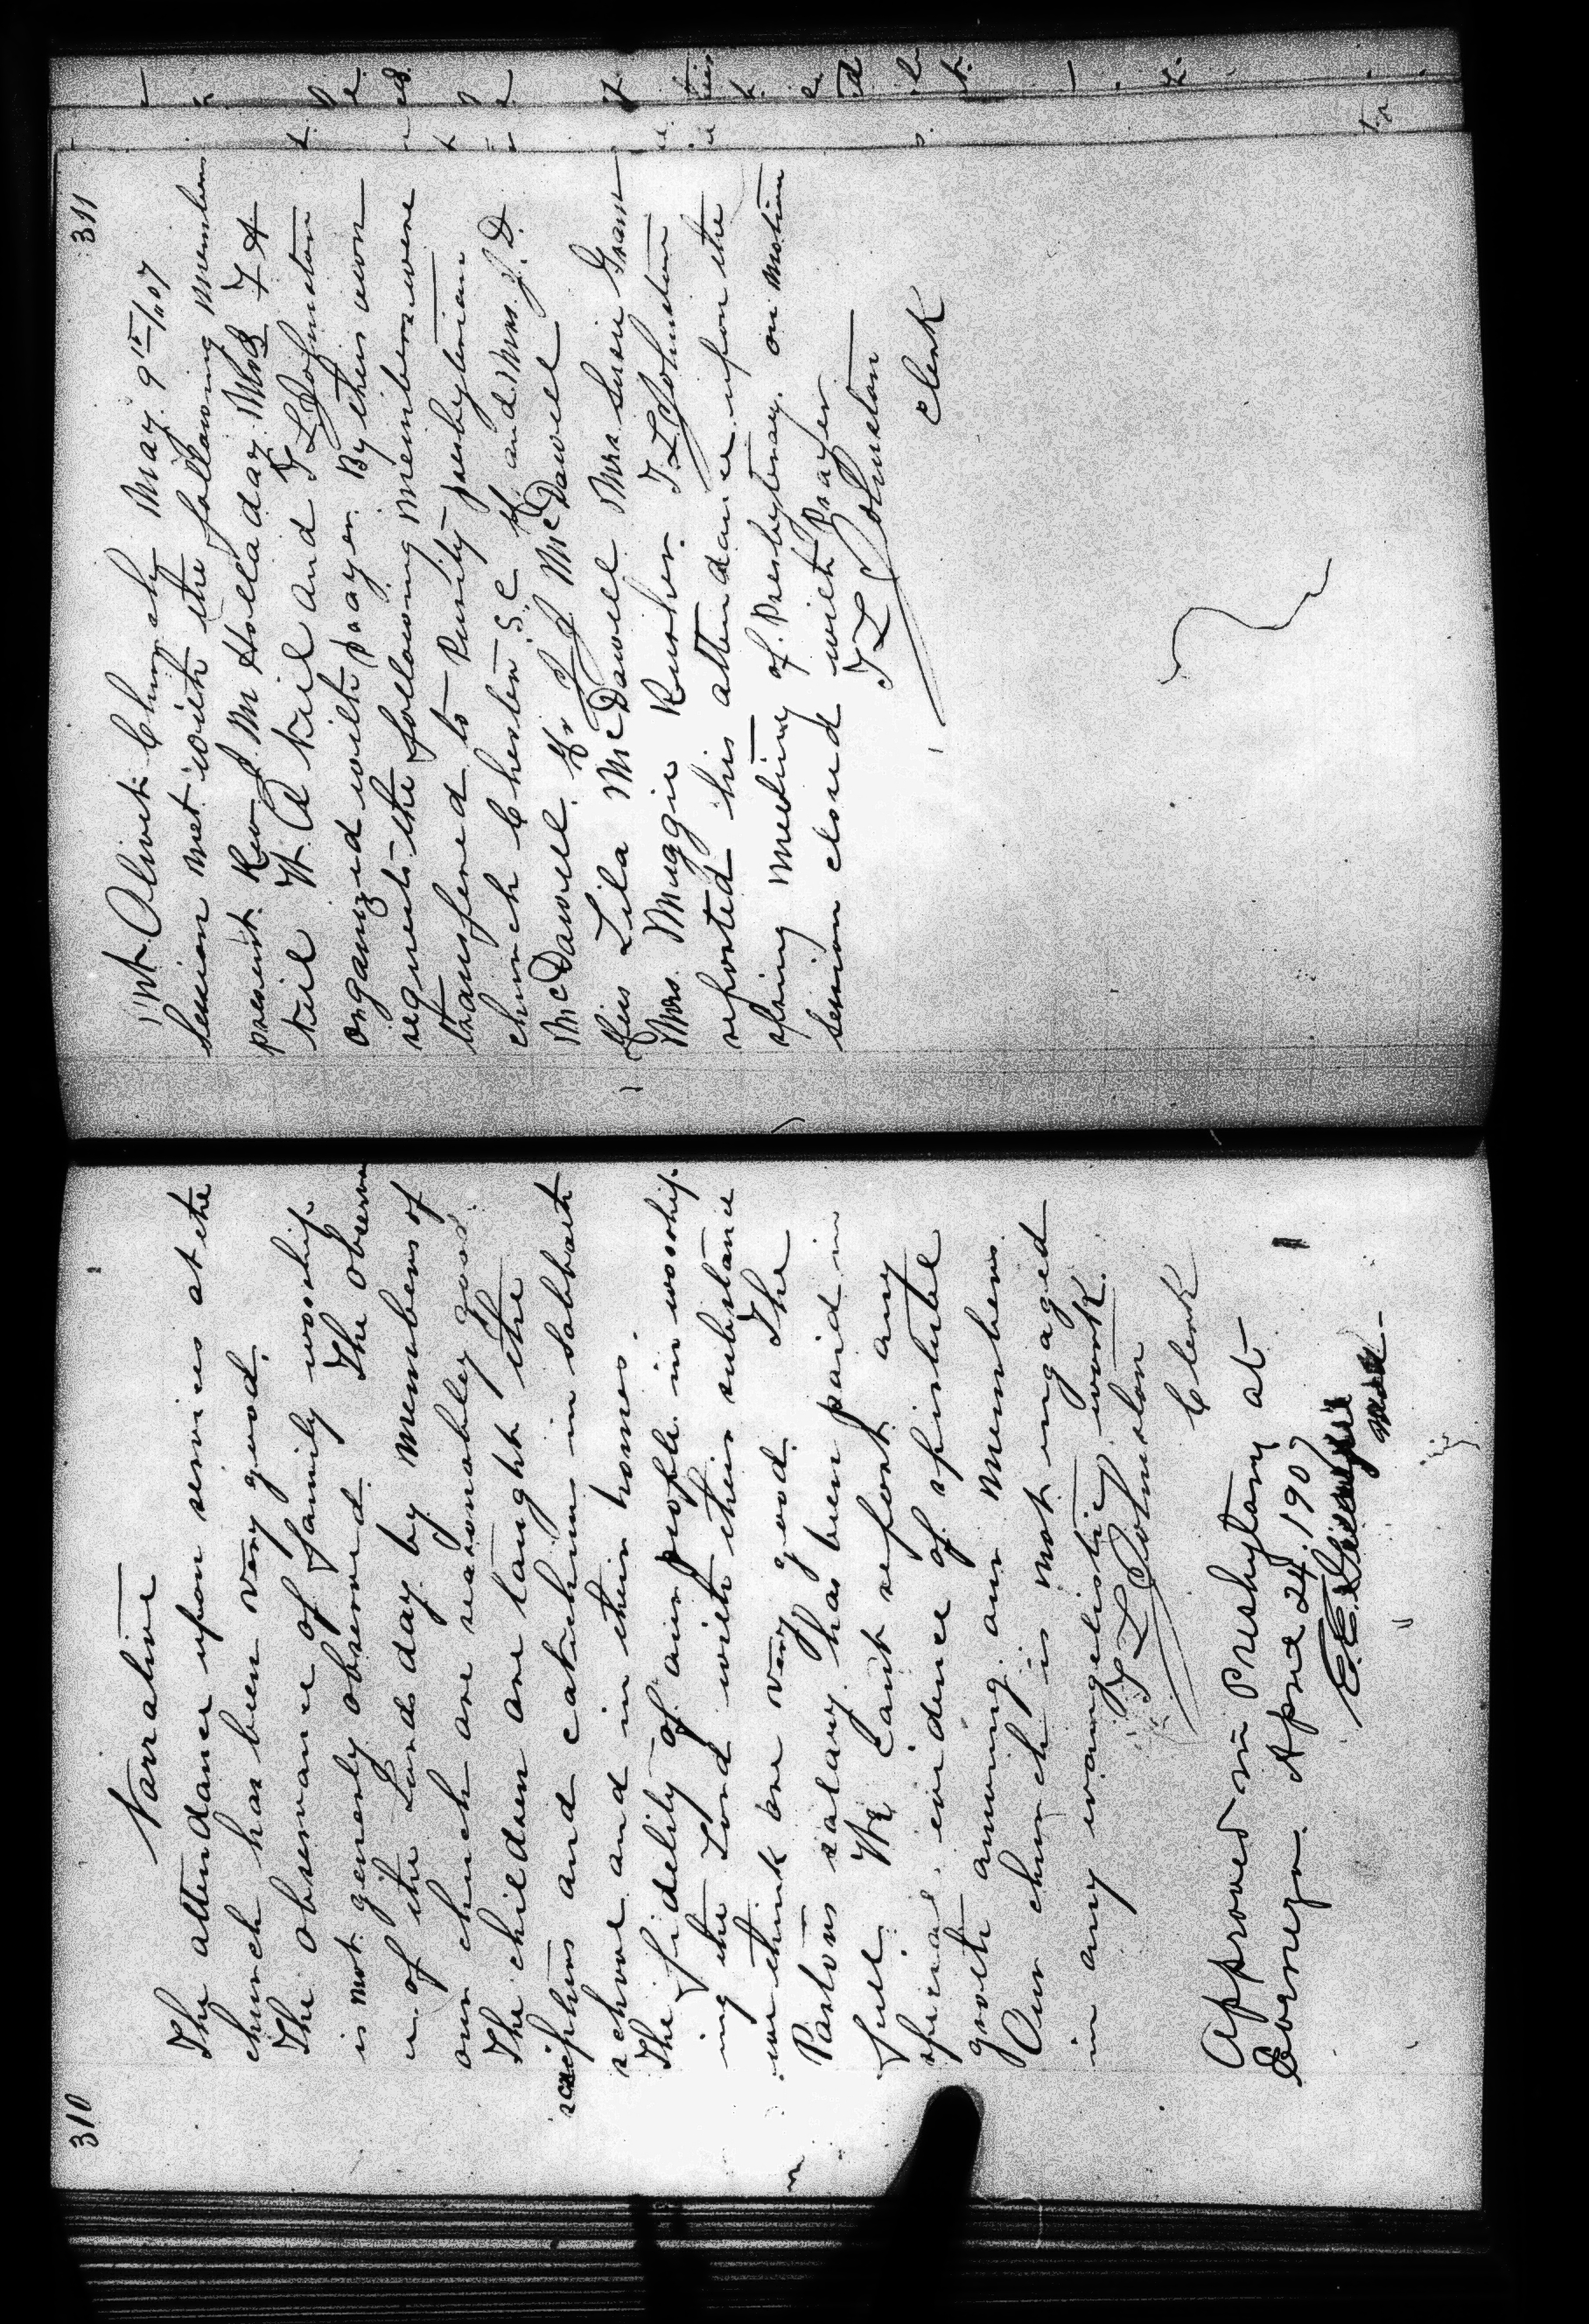 310
Narrative
The attendance upon services at the
church has been very good.
The observance of family worship
is not generly observed. The observan
ce of the Lords day by members of
our church are reasonabley good.
The children are taught the
scriphurs and catichism in Sabbath
school and in their homes.
The fidelity of our people in worship
ing the Lord with their substance
we think are very good. The
Pastors salary has been paid in
full. We cant report any
special evidence of spiritul
growth among our members.
Our church is not ingaged
in any evangelistic work.
T L Johnston
Clerk
Approved in Presbytery at
April 24, 1907
Mod-
311
Mt. Olivet Church May 9th/1907
Session met with the following members
present Rev J M Holladay
W A and T L Johnston
organized with prayer. By thier own
requests the following members were
transfered to Purity presbyterian
church Chester S.C. and Mrs. J. D.
McDowell McDowell
Lila McDowell Mrs Susie Grant
Mrs. Maggie T L Johnston
reported his attendance upon the
spring meeting of Presbytery. on motion
session closed with prayer
T L Johnston
Clerk